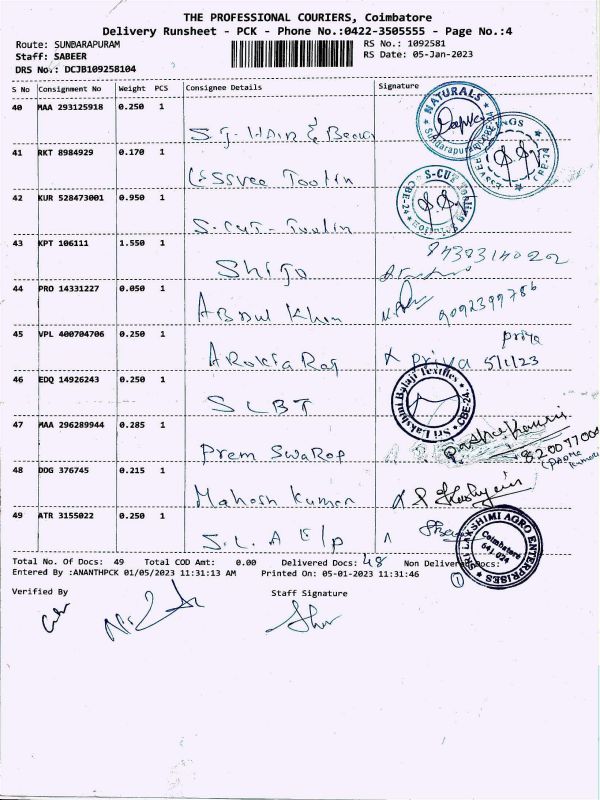 THE PROFESSIONAL COURIERS, Coimbatore
Delivery Runsheet - PCK - Phone No.:0422-3505555 - Page No.:4
Route: SUNDARAPURAM RS No.: 1092581
Staff: SABEER RS Date: 05-Jan-2023
DRS No.: DCJB109258104
S No Consignment No Weight PCS Consignee Details Signature
40 MAA 293125918 0.250 1
NATURALS
S.J. Hair & Beauy
41 RKT 8984929 0.170 1
Essvee Toolin
42 KUR 528473001 0.950 1 S-CUT
CBE-24
S-CUT - Toolin
43 KPT 106111 1.550 1
Shijo
44 PRO 14331227 0.050 1
Abdul Khan 9092399786
45 VPL 400704706 0.250 1 priya
Arokia Raj X priya 5/1/23
46 EDQ 14926243 0.250 1 Sri Lakshmi Balaji Textiles CBE-24
SLBT
47 MAA 296289944 0.285 1
Prem Swarop
48 DDG 376745 0.215 1
Mahesh Kumar
49 ATR 3155022 0.250 1
S.L.A E/p
SRI LAKSHIMI AGRO ENTERPRISES Coimbatore 641-024
Total No. Of Docs: 49 Total COD Amt: 0.00 Delivered Docs: 48 Non Delivered Docs:
Entered By :ANANTHPCK 01/05/2023 11:31:13 AM Printed On: 05-01-2023 11:31:46 1
Verified By Staff Signature